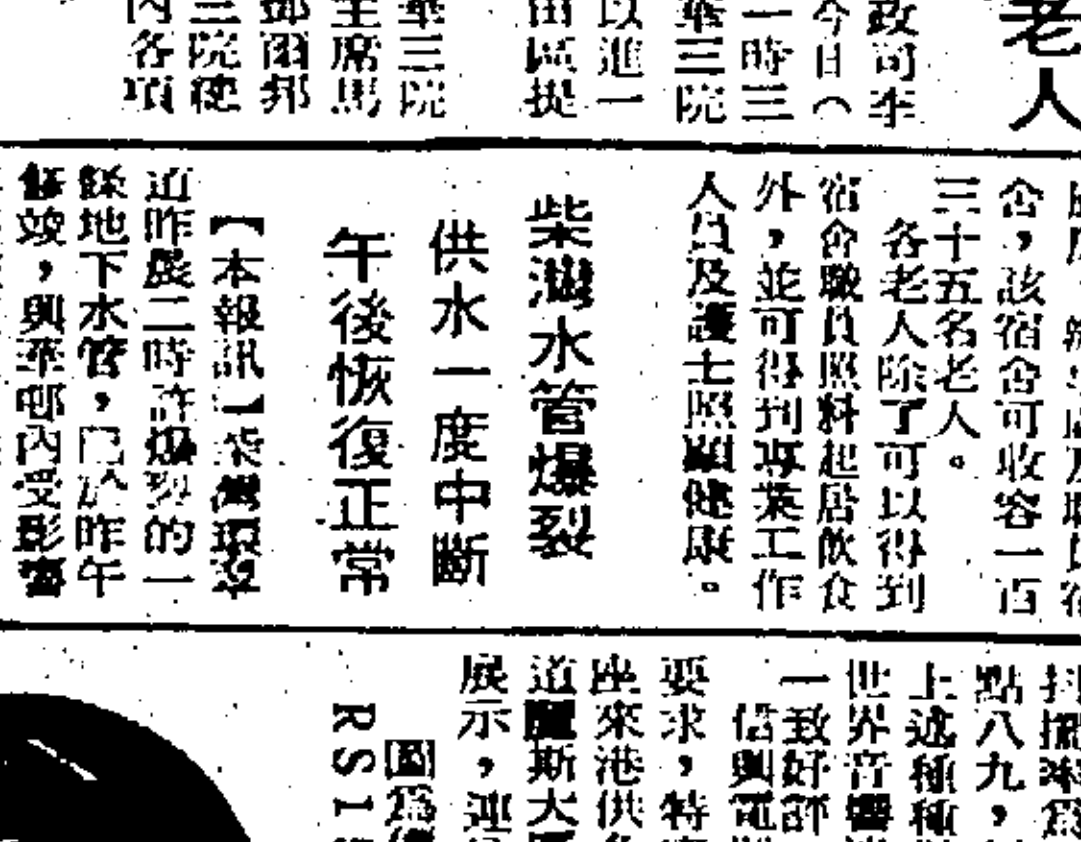 老人
政司李
今日（
一時三
華三院
以進一
田區提
華三院
主席馬
鄧爾邦
三院德
內各項
舍，該宿舍可收容一百
三十五名老人。
各老人除了可以得到
宿舍職員照料起居飲食
外，並可得到專業工作
人員及護士照顧健康。
柴灣水管爆裂
供水一度中斷
午後恢復正常
【本報訊】柴灣環翠
道昨晨二時許爆裂的一
條地下水管，已於昨午
修竣，興華邨內受影響
點八九，
上述種種
世界音響
一致好評
信興電
要求，特
座來港供
道 斯大
展示，連
圖為
RSI